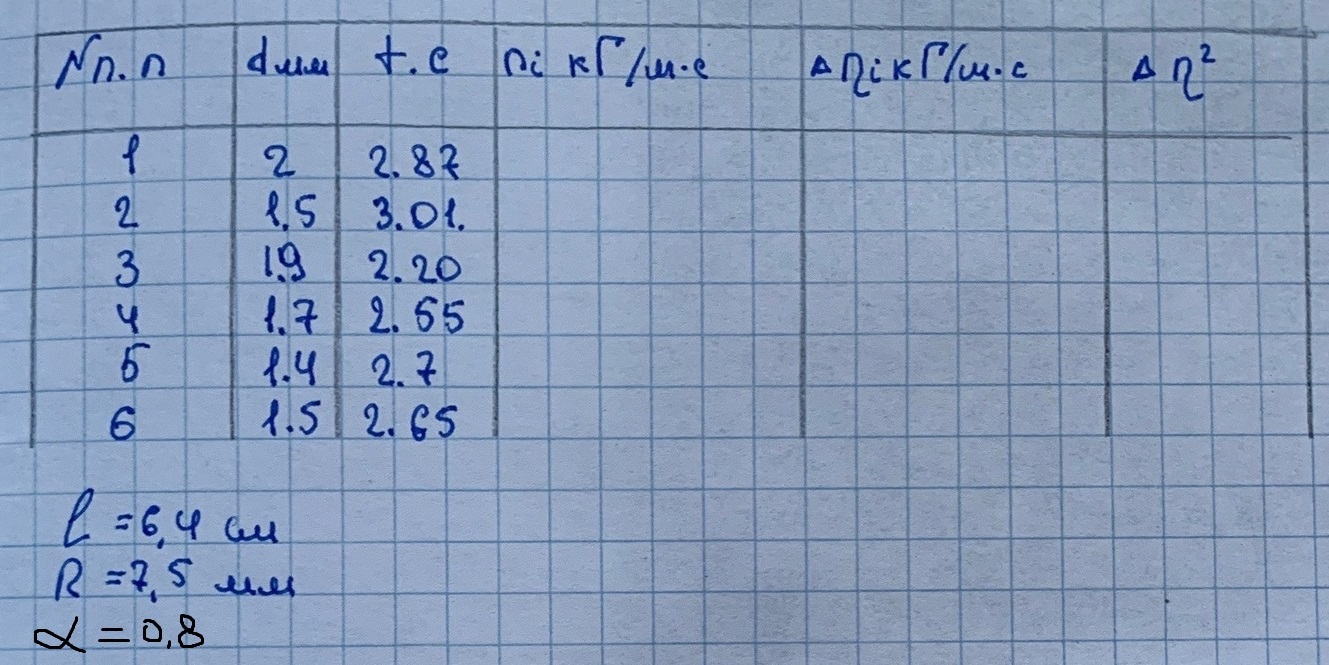 Nп.п d мм t.c ηi кГ/м·с Δηi кГ/м·с Δη²
1 2 2.87
2 1.5 3.01.
3 1.9 2.20
4 1.7 2.55
5 1.4 2.7
6 1.5 2.65
l =6,4 см
R =7,5 мм
α =0,8